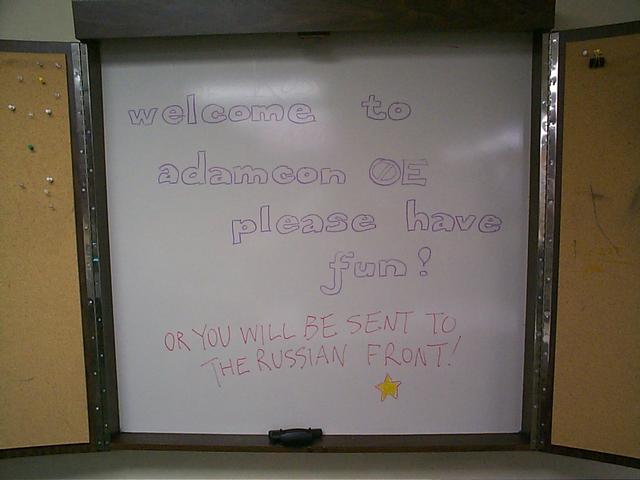 welcome to
adamcon 0E
please have
fun!
OR YOU WILL BE SENT TO
THE RUSSIAN FRONT!